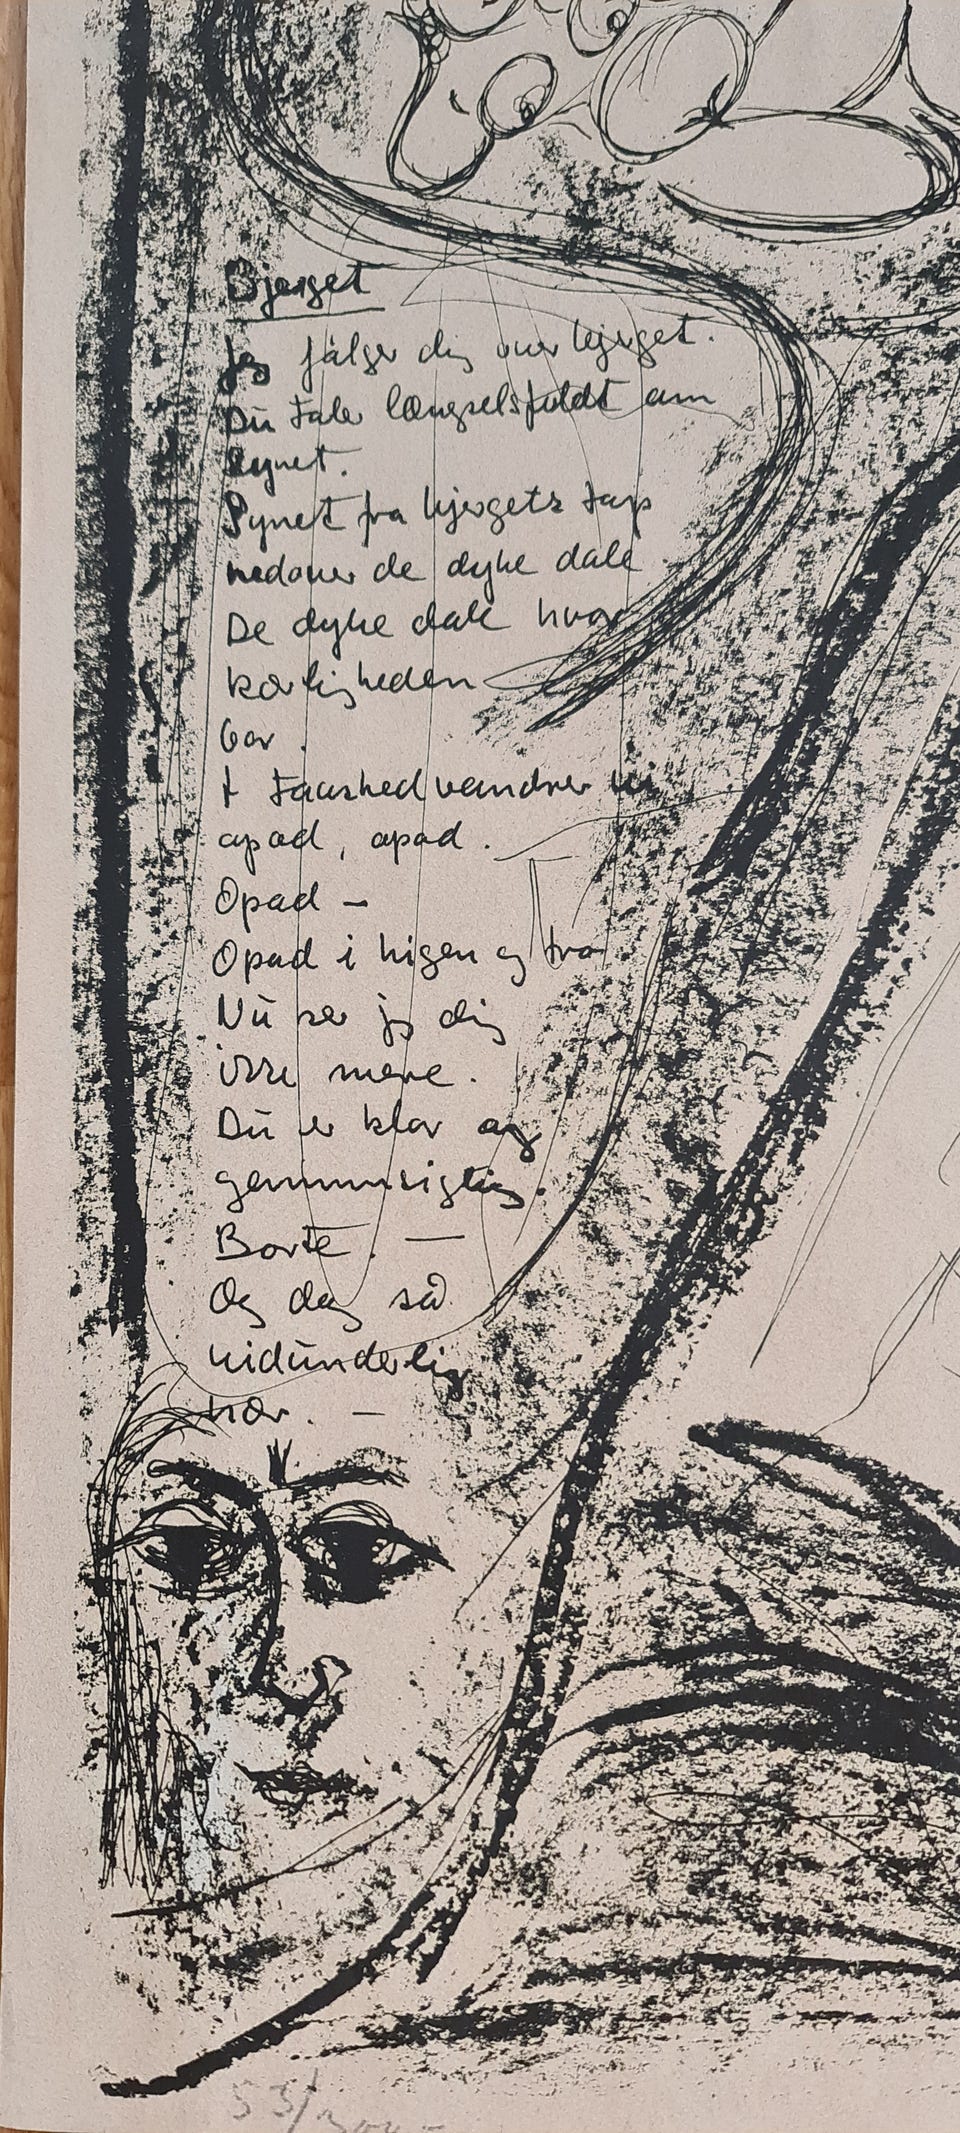 Bjerget
Jeg følger dig over bjerget.
Du taler længselsfuldt om
synet.
Synet fra bjergets top
nedover de dybe dale
De dybe dale hvor
kærligheden
bor.
I taushed vandrer vi
opad, opad.
Opad –
Opad i higen og tro
Nu ser jeg dig
ikke mere.
Du er klar og
gennemsigtig.
Borte. —
Og dog så
vidunderlig
nær. —
53/300 -